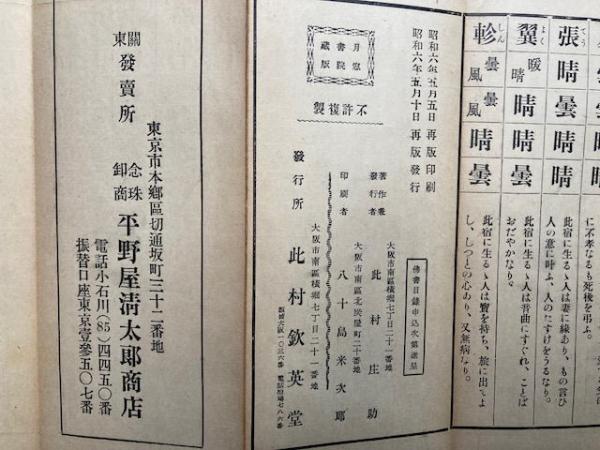 張 てう 晴 曇 晴 晴
に不孝なるも死後を弔ふ。
此宿に生るゝ人は妻に縁あり、もの言ひ
人の意に叶ふ、人のたすけをうるなり。
翼 よく 暖 晴 晴 晴 晴
此宿に生るゝ人は音曲にすぐれ、ことば
おだやかなり。
軫 しん 曇 風 曇 風 曇 曇
此宿に生るゝ人は寶を持ち、旅に出てよ
し、しつとの心あり、又無病なり。
昭和六年五月五日 再版印刷
昭和六年五月十日 再版發行
佛書目録申込次第進呈
月窓書院藏版
不許複製
大阪市南區横堀七丁目二十一番地
著作兼發行者 此村庄助
大阪市南區北炭屋町二十番地
印刷者 八十島米次郎
大阪市南區横堀七丁目二十一番地
發行所 此村欽英堂
東京市本郷區切通坂町三十二番地
關東發賣所 念珠卸商 平野屋淸太郎商店
電話小石川(85)四四五〇番
振替口座東京壹參五〇七番